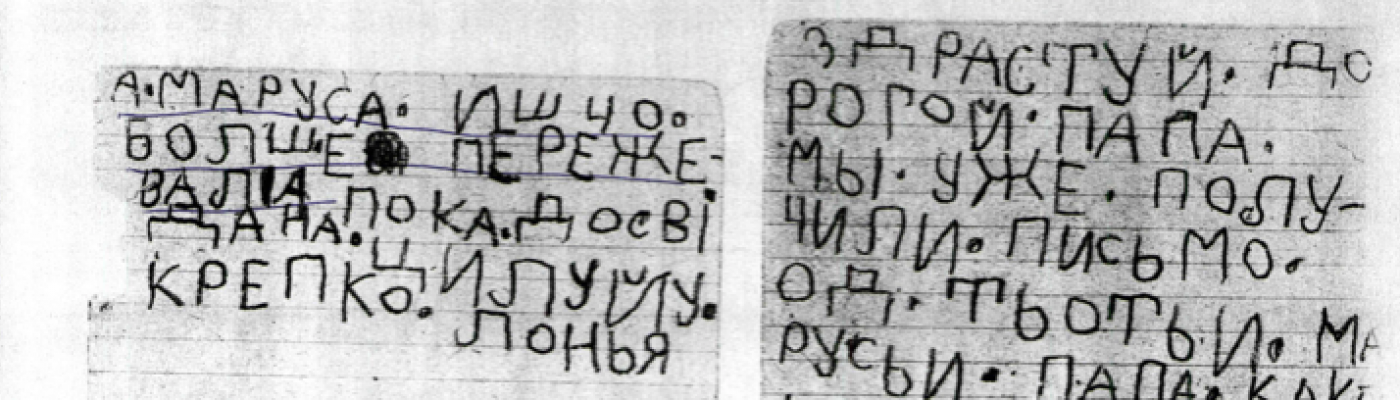 А.МАРУСА. ИШЧО.
БОЛШЕ ПЕРЕЖЕ-
ВАЛІА
ДАНА.ПОКА.ДОСВІ
КРЕПКО.ЦИЛУЙУ.
ЛОНЬЯ
ЗДРАСТУЙ. ДО
РОГОЙ. ПАПА.
МЫ. УЖЕ. ПОЛУ-
ЧИЛИ. ПИСЬМО.
ОД. ТЬОТЬИ. МА
РУСЬИ. ПАПА.